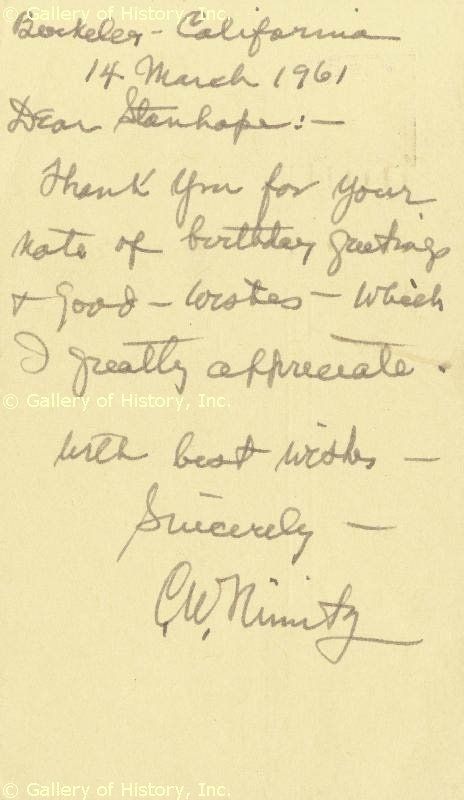 © Gallery of History, Inc.
Berkeley - California
14 March 1961
Dear Stanhope: -
Thank you for your
note of birthday greetings
& good - wishes - which
I greatly appreciate.
© Gallery of History, Inc.
With best wishes -
Sincerely -
C.W. Nimitz
© Gallery of History, Inc.